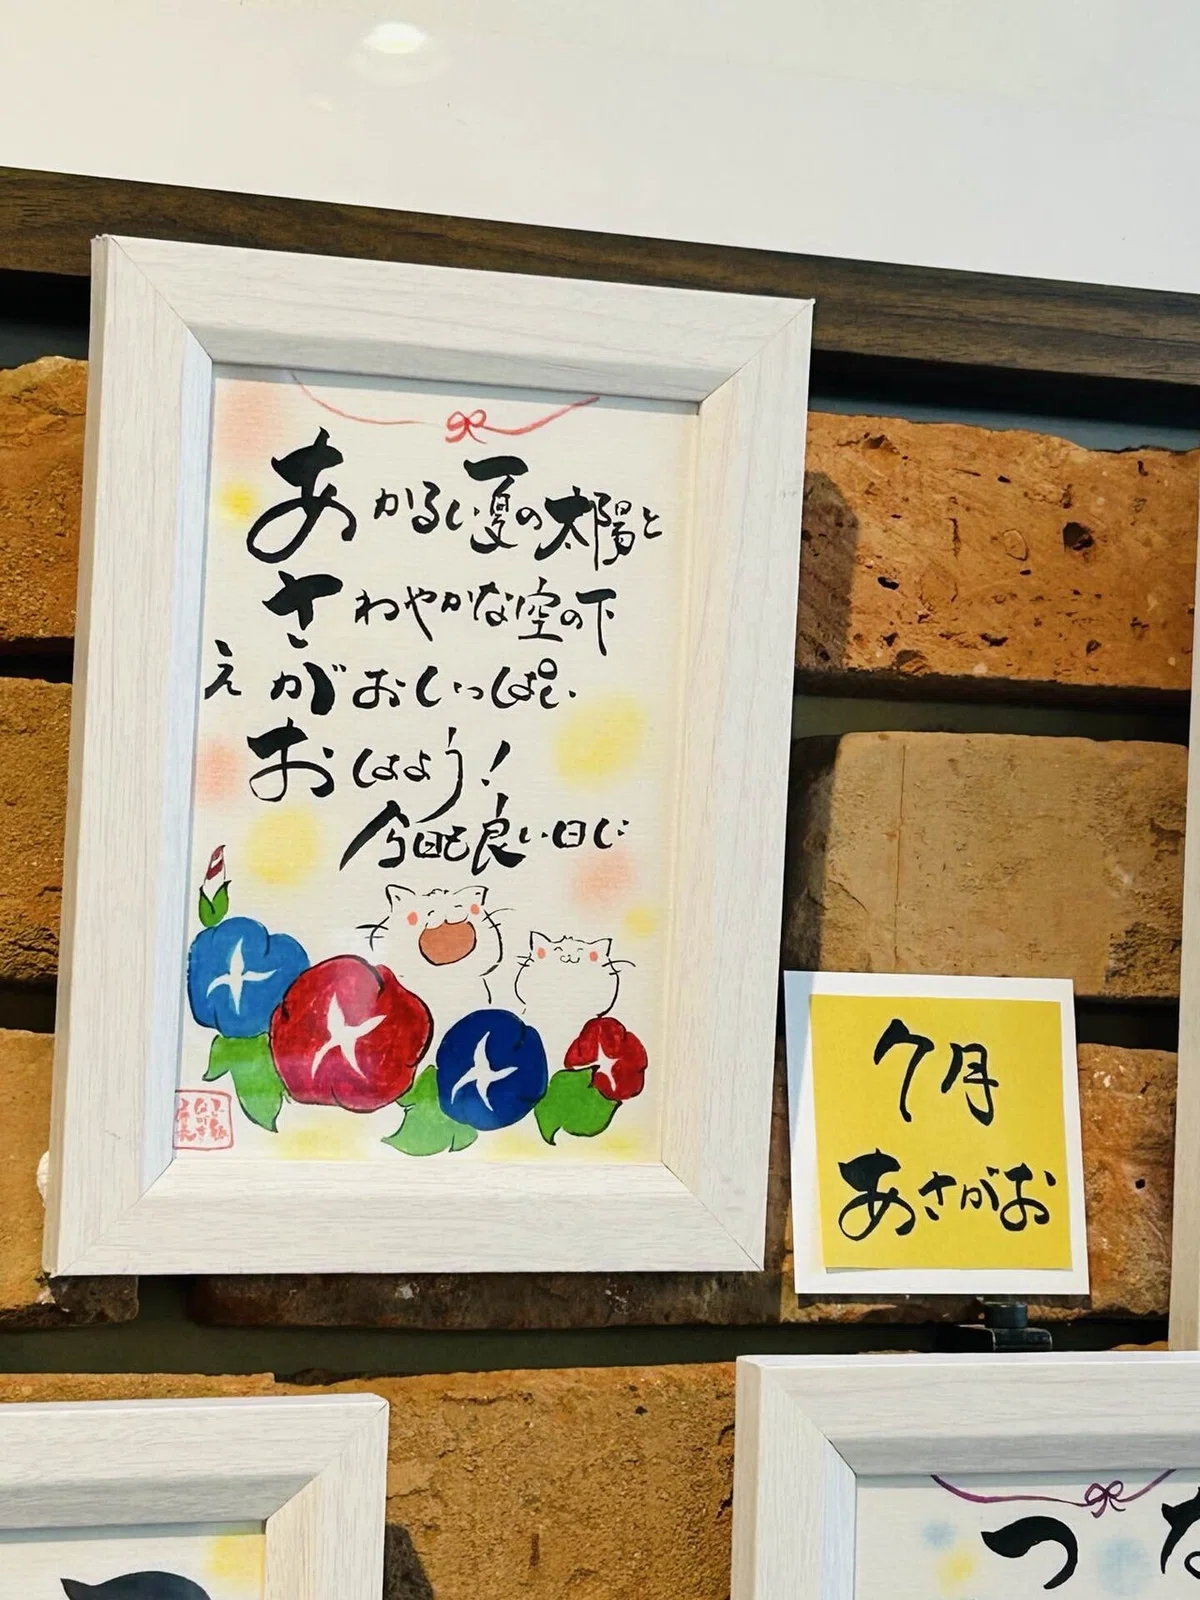 あかるい夏の太陽と
さわやかな空の下
えがおいっぱい
おはよう！
今日も良い日に
7月
あさがお
つな